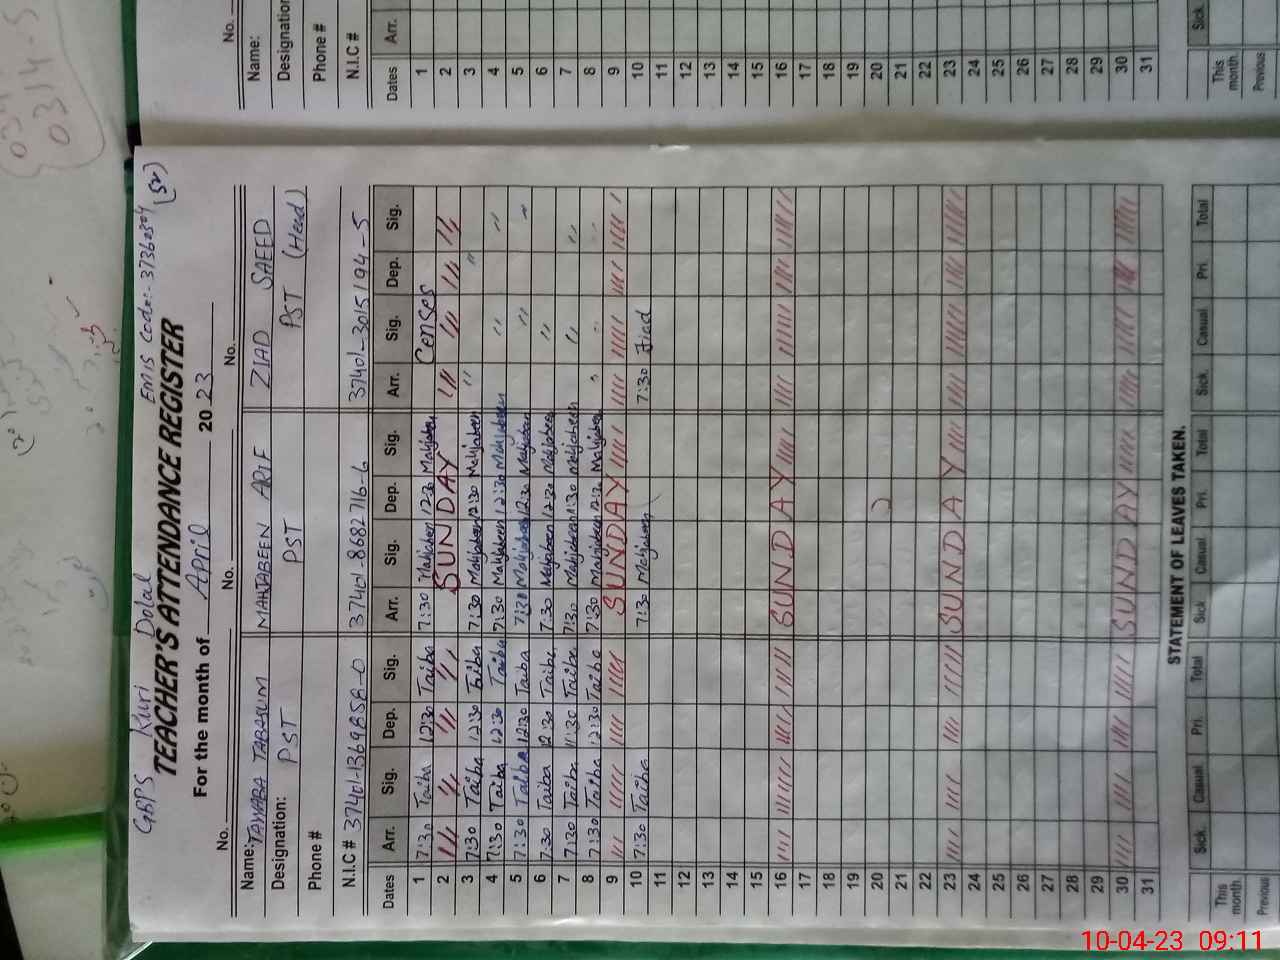 GBPS Kuri Dolal EMIS Code:- 37360304
TEACHER'S ATTENDANCE REGISTER
For the month of April 2023
No. No. No.
Name: TAYYABA TABASUM MAHJABEEN ARIF ZIAD SAEED
Designation: PST PST PST (Head)
Phone #
N.I.C # 37401-1369858-0 37401-8682716-6 37401-3015194-5
Dates Arr. Sig. Dep. Sig. Arr. Sig. Dep. Sig. Arr. Sig. Dep. Sig.
1 7:30 Taiba 12:30 Taiba 7:30 Mahjabeen 12:30 Mahjabeen Censes
2 SUNDAY
3 7:30 Taiba 12:30 Taiba 7:30 Mahjabeen 12:30 Mahjabeen " "
4 7:30 Taiba 12:30 Taiba 7:30 Mahjabeen 12:30 Mahjabeen " "
5 7:30 Taiba 12:30 Taiba 7:30 Mahjabeen 12:30 Mahjabeen " "
6 7:30 Taiba 12:30 Taiba 7:30 Mahjabeen 12:30 Mahjabeen "
7 7:30 Taiba 11:30 Taiba 7:30 Mahjabeen 11:30 Mahjabeen " "
8 7:30 Taiba 12:30 Taiba 7:30 Mahjabeen 12:30 Mahjabeen
9 SUNDAY
10 7:30 Taiba 7:30 Mahjabeen 7:30 Ziad
11
12
13
14
15
16 SUNDAY
17
18
19
20
21
22
23 SUNDAY
24
25
26
27
28
29
30 SUNDAY
31
STATEMENT OF LEAVES TAKEN.
Sick. Casual Pri. Total Sick Casual Pri. Total Sick. Casual Pri. Total
This month
Previous
No.
Name:
Designation
Phone #
N.I.C #
Dates Arr.
1
2
3
4
5
6
7
8
9
10
11
12
13
14
15
16
17
18
19
20
21
22
23
24
25
26
27
28
29
30
31
Sick
This month
Previous
0314-5
10-04-23 09:11